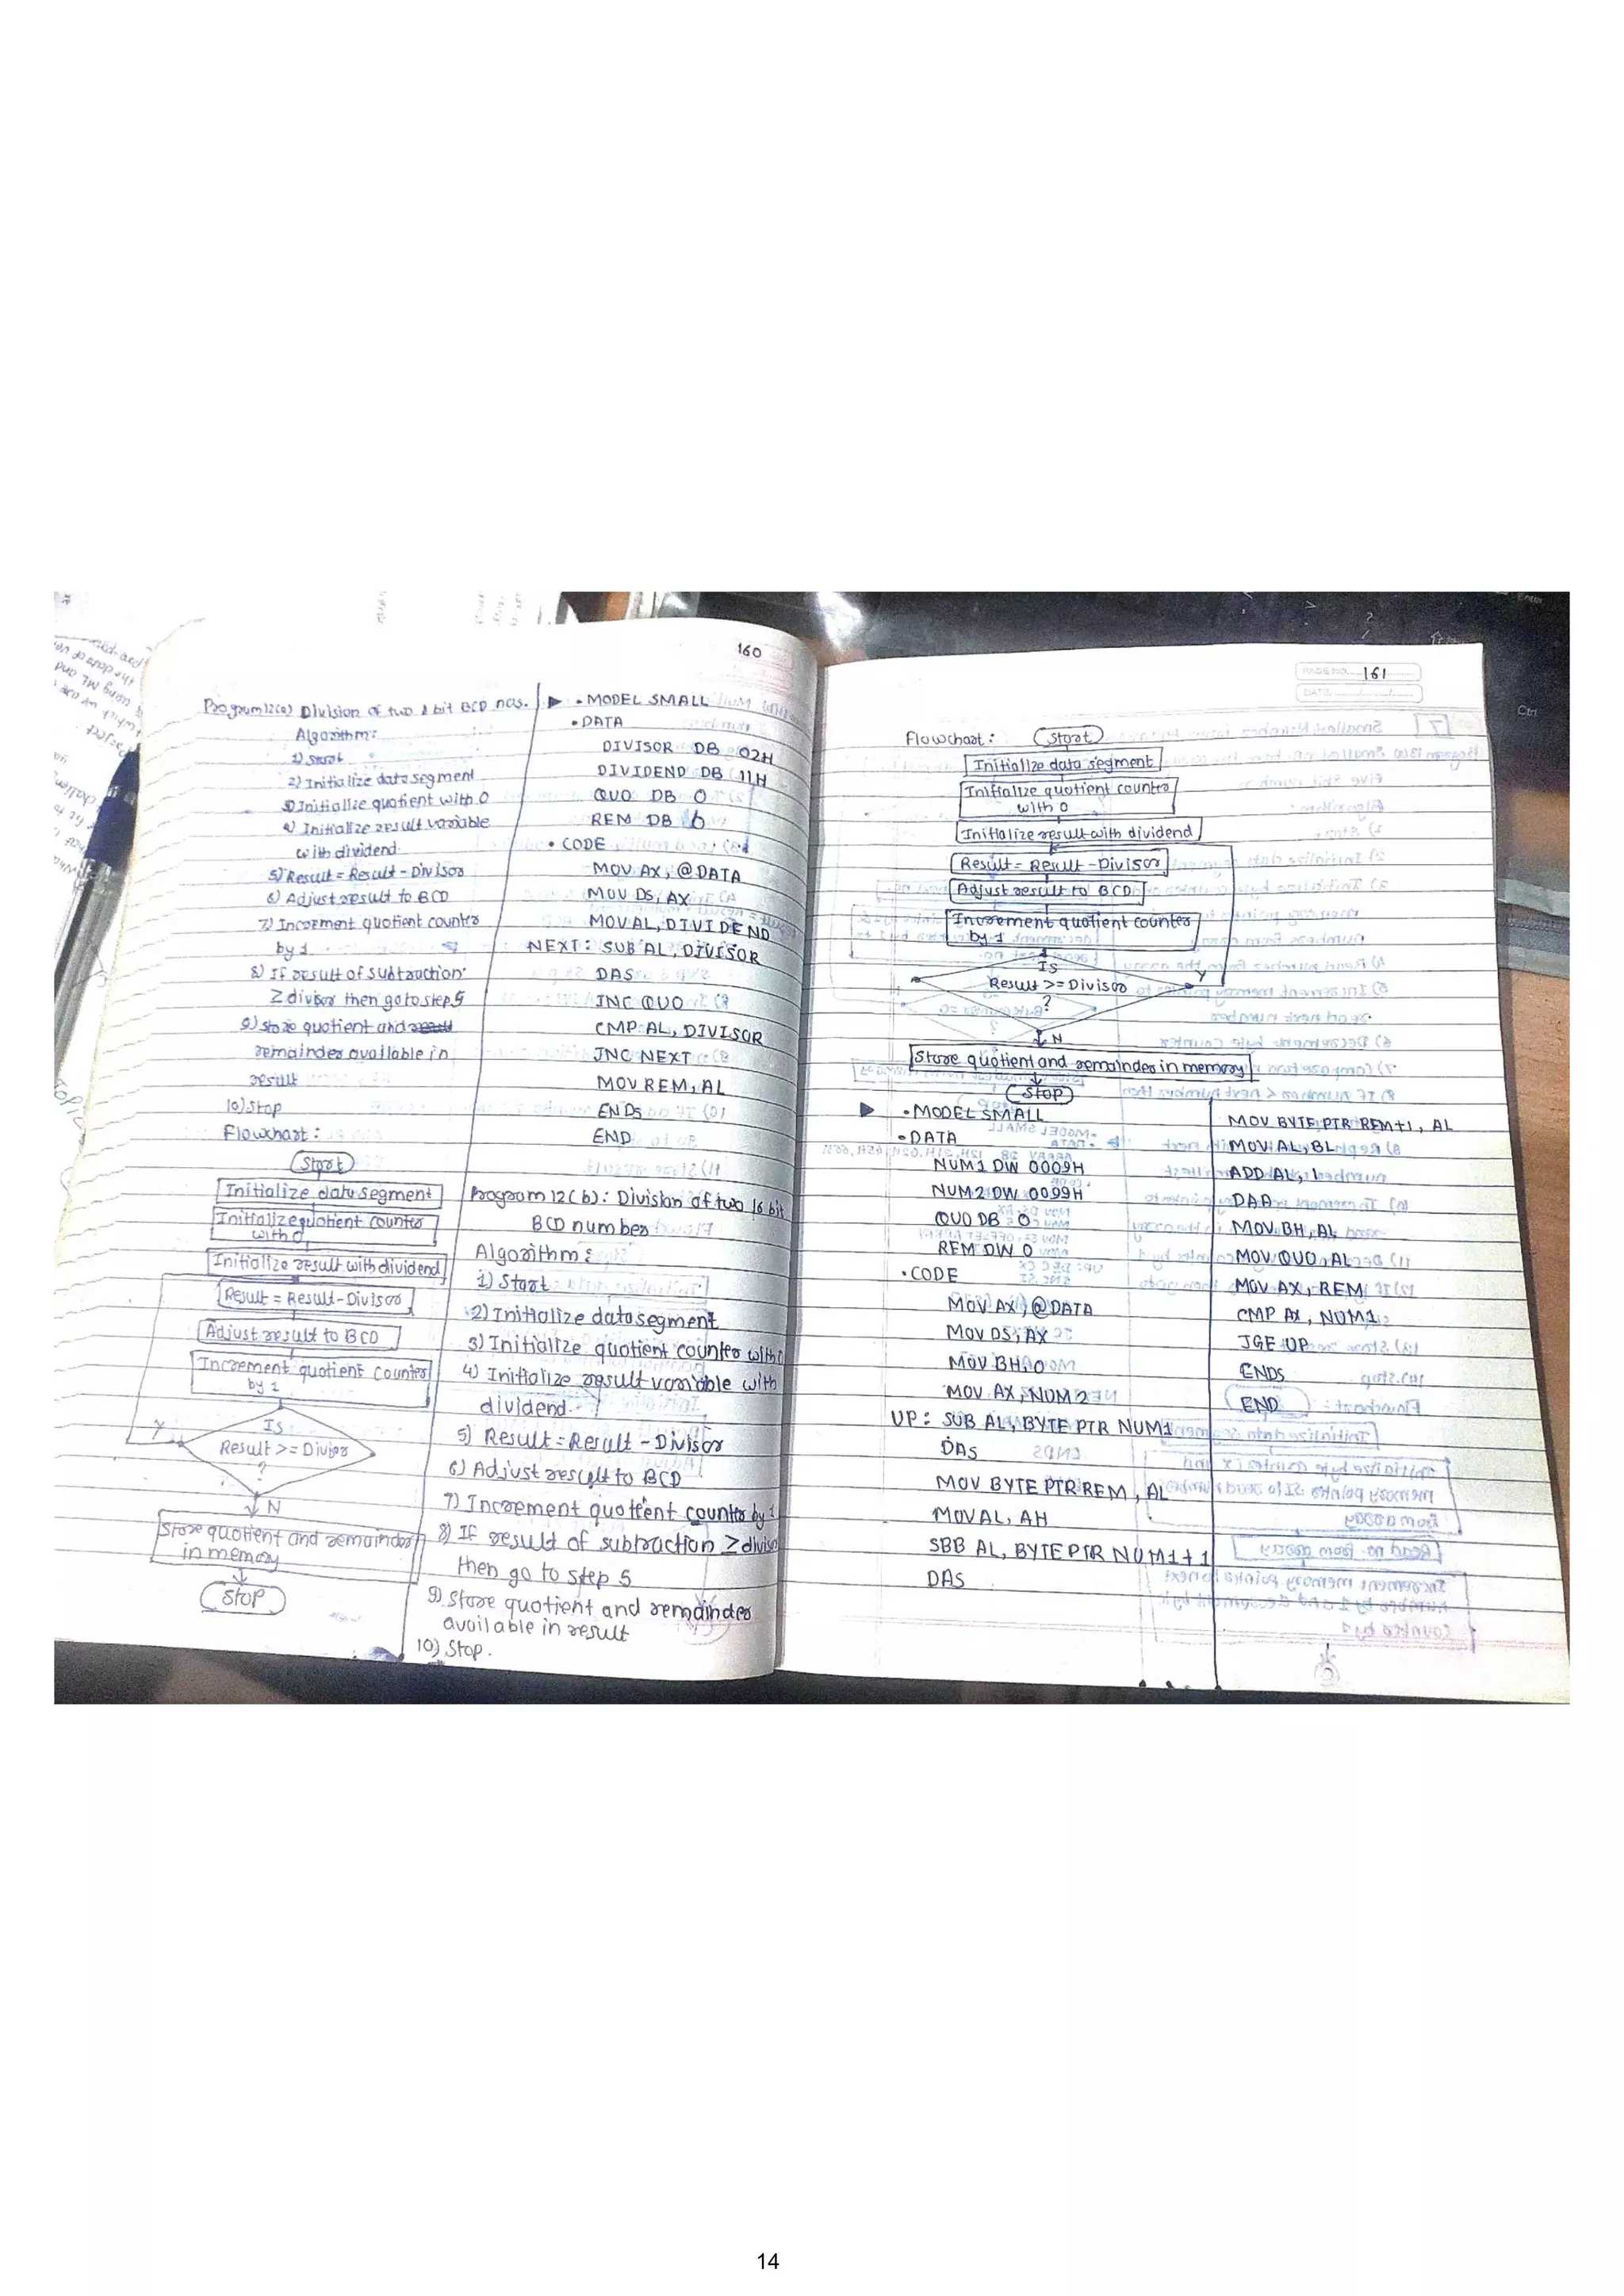 160
Program 12(a) Division of two 8 bit BCD nos.
Algorithm:
1) Start
2) Initialize data segment
3) Initialize quotient with 0
4) Initialize result variable
with dividend
5) Result = Result - Divisor
6) Adjust result to BCD
7) Increment quotient counter
by 1
8) If result of subtraction
≥ divisor then go to step 5
9) Store quotient and
remainder available in
result
10) Stop
Flowchart:
Start
Initialize data segment
Initialize quotient counter
with 0
Initialize result with dividend
Result = Result - Divisor
Adjust result to BCD
Increment quotient counter
by 1
IS
Result >= Divisor
?
Y
N
Store quotient and remainder
in memory
Stop
.MODEL SMALL
.DATA
DIVISOR DB 02H
DIVIDEND DB 11H
QUO DB 0
REM DB 0
.CODE
MOV AX, @DATA
MOV DS, AX
MOV AL, DIVIDEND
NEXT: SUB AL, DIVISOR
DAS
INC QUO
CMP AL, DIVISOR
JNC NEXT
MOV REM, AL
ENDS
END
Program 12(b): Division of two 16 bit
BCD number
Algorithm:
1) Start
2) Initialize data segment
3) Initialize quotient counter with 0
4) Initialize result variable with
dividend
5) Result = Result - Divisor
6) Adjust result to BCD
7) Increment quotient counter by 1
8) If result of subtraction ≥ divisor
then go to step 5
9) Store quotient and remainder
available in result
10) Stop.
PAGE NO. 161
DATE
Flowchart:
Start
Initialize data segment
Initialize quotient counter
with 0
Initialize result with dividend
Result = Result - Divisor
Adjust result to BCD
Increment quotient counter
by 1
IS
Result >= Divisor
?
Y
N
Store quotient and remainder in memory
Stop
.MODEL SMALL
.DATA
NUM1 DW 0009H
NUM2 DW 0099H
QUO DB 0
REM DW 0
.CODE
MOV AX, @DATA
MOV DS, AX
MOV BH, 0
MOV AX, NUM2
UP: SUB AL, BYTE PTR NUM1
DAS
MOV BYTE PTR REM, AL
MOV AL, AH
SBB AL, BYTE PTR NUM1+1
DAS
MOV BYTE PTR REM+1, AL
MOV AL, BL
ADD AL, 1
DAA
MOV BH, AL
MOV QUO, AL
MOV AX, REM
CMP AX, NUM1
JGE UP
ENDS
END
Ctrl
14